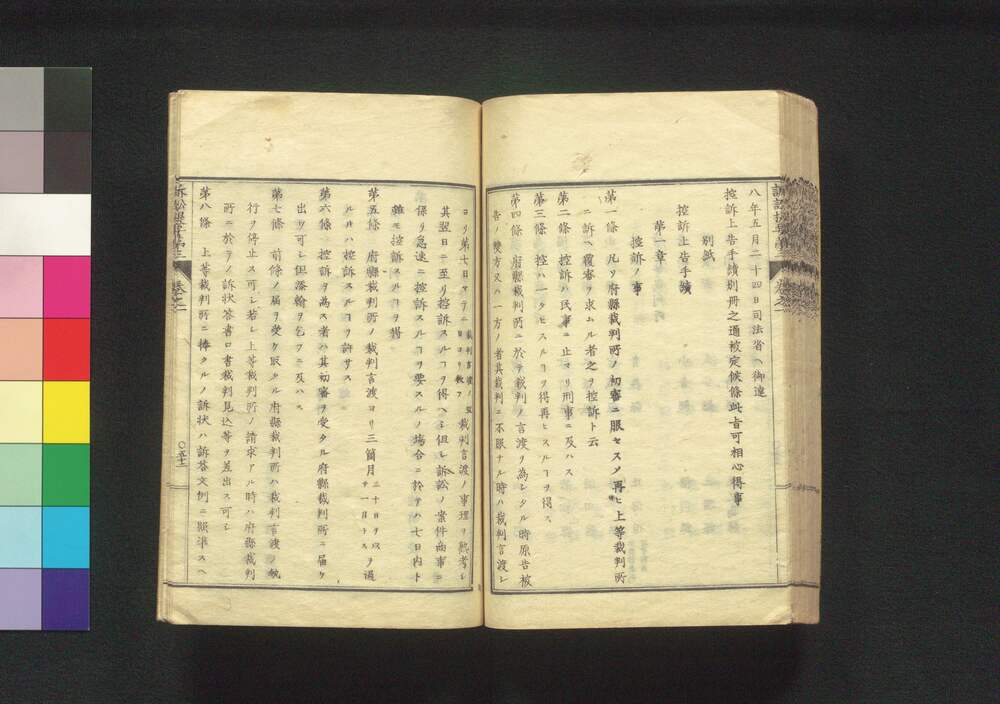 八年五月二十四日司法省ヘ御達
控訴上告手續別冊之通被定候條此旨可相心得事
別紙
控訴上告手續
第一章
控訴ノ事
第一條 凡ソ府縣裁判所ノ初審ニ服セスノ再ヒ上等裁判所
ニ訴ヘ覆審ヲ求ムル者之ヲ控訴ト云
第二條 控訴ハ民事ニ止マリ刑事ニ及ハス
第三條 控ハ一タヒスルヿヲ得再ヒスルヿヲ得ス
第四條 府縣裁判所ニ於テ裁判ノ言渡ヲ為シタル時原告被
告ノ雙方又ハ一方ノ者其裁判ニ不服ナル時ハ裁判言渡シ
ヨリ第七日マテニ 裁判言渡ノ翌日ヨリ数フ 裁判言渡ノ事理ヲ熟考シ
其翌日ニ至リ控訴スルヿヲ得ヘシ但シ訴訟ノ案件商事ニ
係リ急速ニ控訴スルヿヲ要スルノ場合ニ於テハ七日内ト
雖モ控訴スルヿヲ得
第五條 府縣裁判所ノ裁判言渡ヨリ三箇月 三十日ヲ以テ一月トス ヲ過
ルルハ控訴スルヿヲ許サス
第六條 控訴ヲ為ス者ハ其初審ヲ受タル府縣裁判所ニ届ケ
出ツ可シ但添翰ヲ乞フニ及ハス
第七條 前條ノ届ヲ受ケ取タル府縣裁判所ハ裁判言渡ノ執
行ヲ停止ス可シ若シ上等裁判所ノ請求アル時ハ府縣裁判
所ニ於テノ訴状答書口書裁判見込等ヲ差出ス可シ
第八條 上等裁判所ニ捧クルノ訴状ハ訴答文例ニ照準スヘ
卷之一